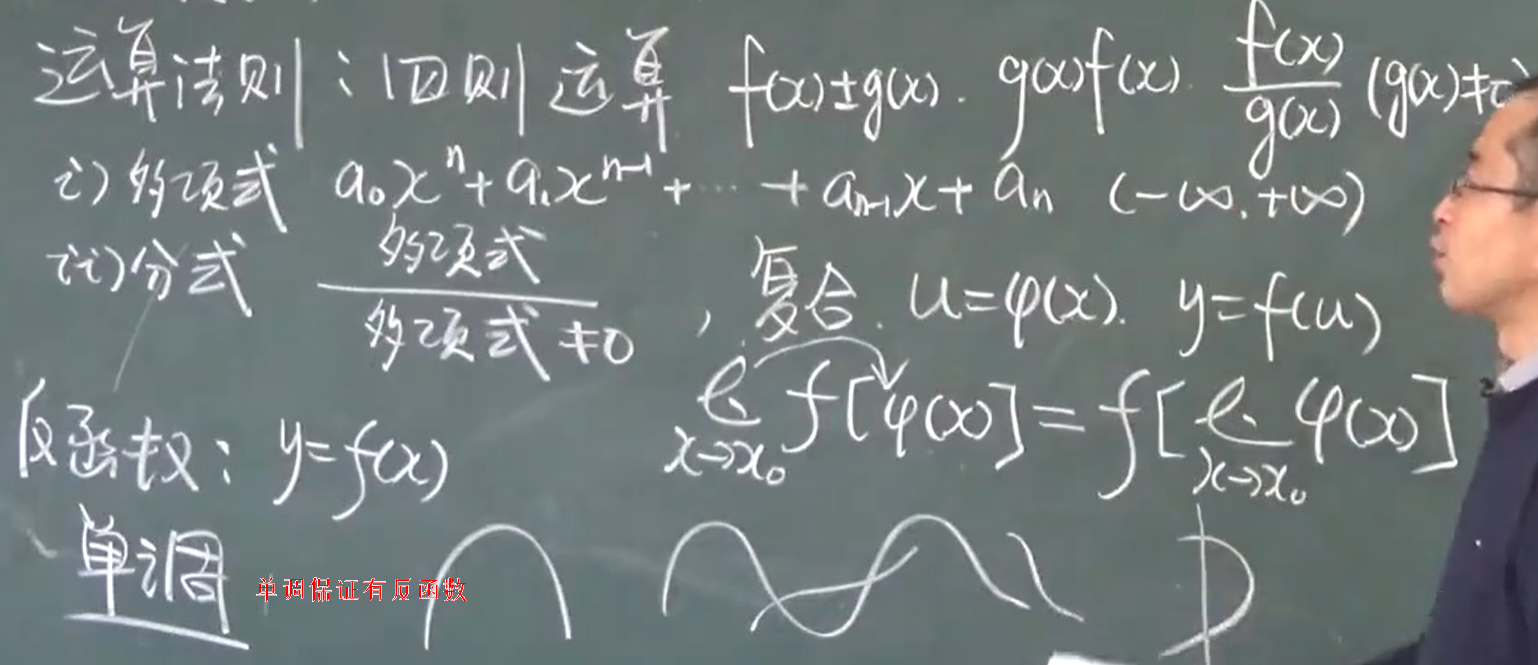 运算法则：四则运算 f(x)±g(x). g(x)f(x). f(x)/g(x) (g(x)≠0)
i) 多项式 a₀xⁿ+a₁xⁿ⁻¹+⋯+aₙ₋₁x+aₙ (-∞,+∞)
ii) 分式 多项式/多项式≠0 , 复合. u=φ(x). y=f(u)
lim x→x₀ f[φ(x)]=f[lim x→x₀ φ(x)]
反函数：y=f(x)
单调 单调保证有反函数